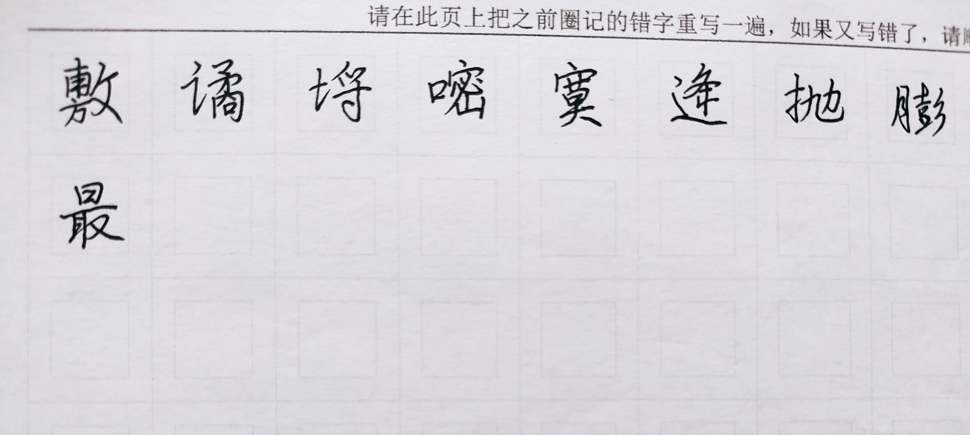 请在此页上把之前圈记的错字重写一遍，如果又写错了，请
敷谲埒嘧寞逄抛膨
最